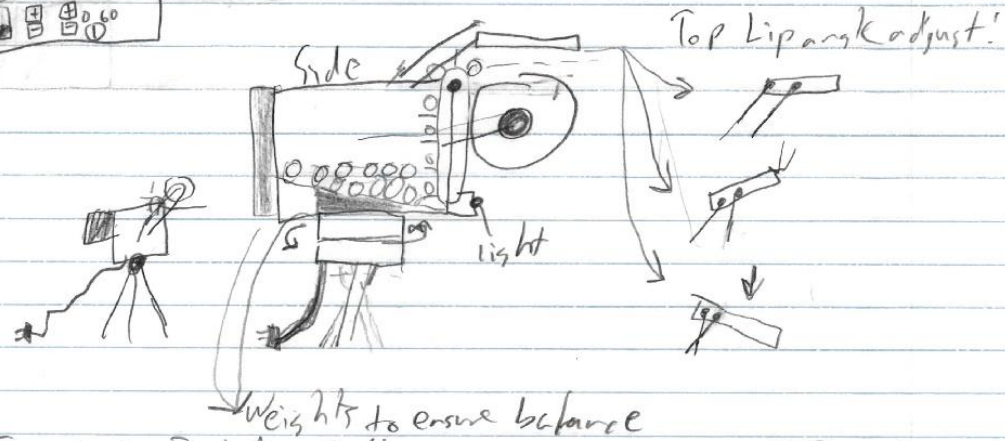 0 60
1
Top Lip angle adjust!
Side
light
Weights to ensure balance